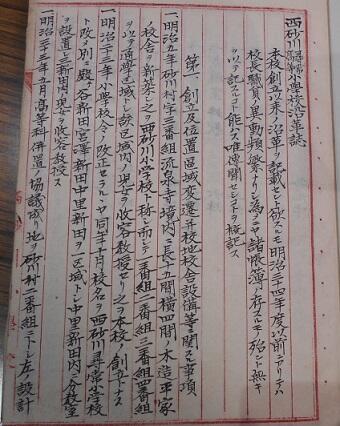 西砂川尋常高等小學校沿革誌
本校創立以来ノ沿革ヲ記載セント欲スルモ明治三十四年度以前ニアリテハ
校長職員ノ異動頻繁ナリシ為メニヤ諸帳簿ノ存スルモノ殆ント無キ
ヲ以テ記スコト能ハス唯傳聞セシコトヲ概記ス
第一、創立及位置區域変遷并校地校舎設備等ニ関スル事項
一、明治九年砂川村字三番組流泉寺境内ニ長サ九間横四間ノ木造平家
ノ校舎ヲ新築シ之ヲ西砂川小学校ト称シ而シテ一番組二番組三番組四番組
ヲ以テ通學区域トシ該区域内ノ児童ヲ收容教授セリ之ヲ本校ノ創立トナス
一、明治二十三年小学校令ノ改正セラルヤ同年十月校名ヲ西砂川尋常小学校
ト改メ別ニ殿ヶ谷新田宮沢新田中里新田ヲ区域トシ中里新田内ニ分教室
ヲ設置シ三新田内児童ヲ收容教授ス
一、明治三十三年九月高等科併置ノ協議成リ地ヲ砂川村二番組ニトシ左ノ設計